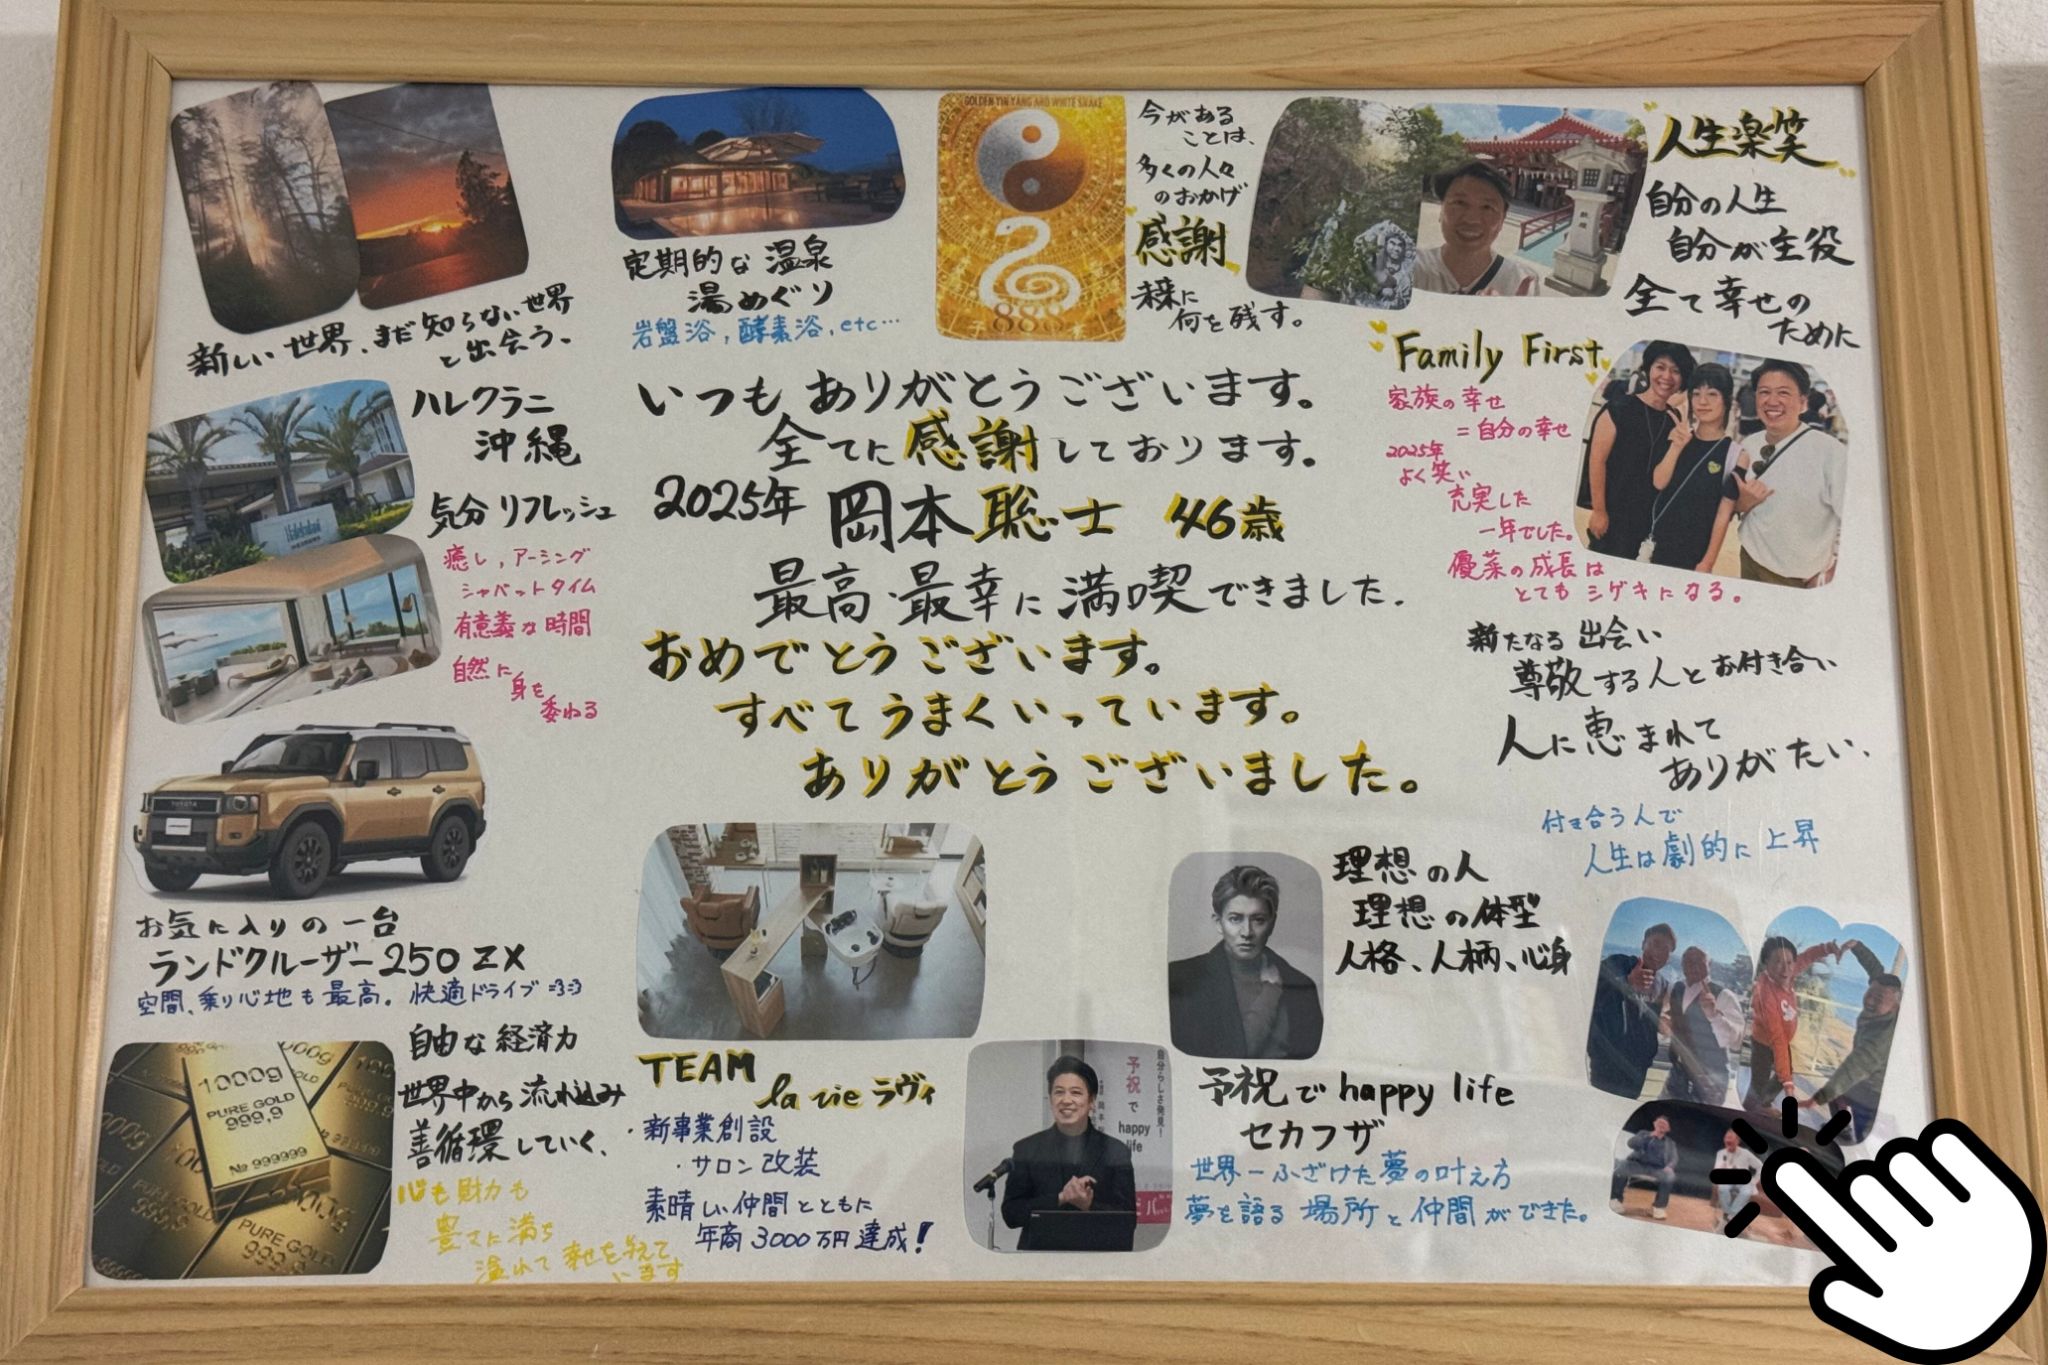 新しい世界、まだ知らない世界
と出会う、
定期的な温泉
湯めぐり
岩盤浴,酵素浴,etc…
GOLDEN YIN YANG AND WHITE SNAKE
888
今がある
ことは、
多くの人々
のおかげ
感謝
未来に
何を残す。
"人生楽笑"
自分の人生
自分が主役
全て幸せの
ために
Family First
家族の幸せ
=自分の幸せ
2025年
よく笑い
充実した
一年でした。
優菜の成長は
とてもシゲキになる。
ハレクラニ
沖縄
気分リフレッシュ
癒し,アーシング
シャベットタイム
有意義な時間
自然に
身を
委ねる
Halekulani
いつもありがとうございます。
全てに感謝しております。
2025年 岡本聡士 46歳
最高・最幸に満喫できました.
おめでとうございます。
すべてうまくいっています。
ありがとうございました。
新たなる出会い
尊敬する人とお付き合い
人に恵まれて
ありがたい.
付き合う人で
人生は劇的に上昇
TOYOTA
お気に入りの一台
ランドクルーザー250 ZX
空間、乗り心地も最高。快適ドライブ
自由な経済力
世界中から流れ込み
善循環していく.
心も財力も
豊さに満ち
溢れて幸せを与えて
います
1000g
PURE GOLD
999,9
No 999999
PURE GOLD
999.9
TEAM
la vie ラヴィ
・新事業創設
・サロン改装
素晴しい仲間とともに
年商3000万円達成!
理想の人
理想の体型
人格、人柄、心身
予祝で
happy
life
自分らしさ発見!
予祝でhappy life
セカフザ
世界一ふざけた夢の叶え方
夢を語る場所と仲間ができた。